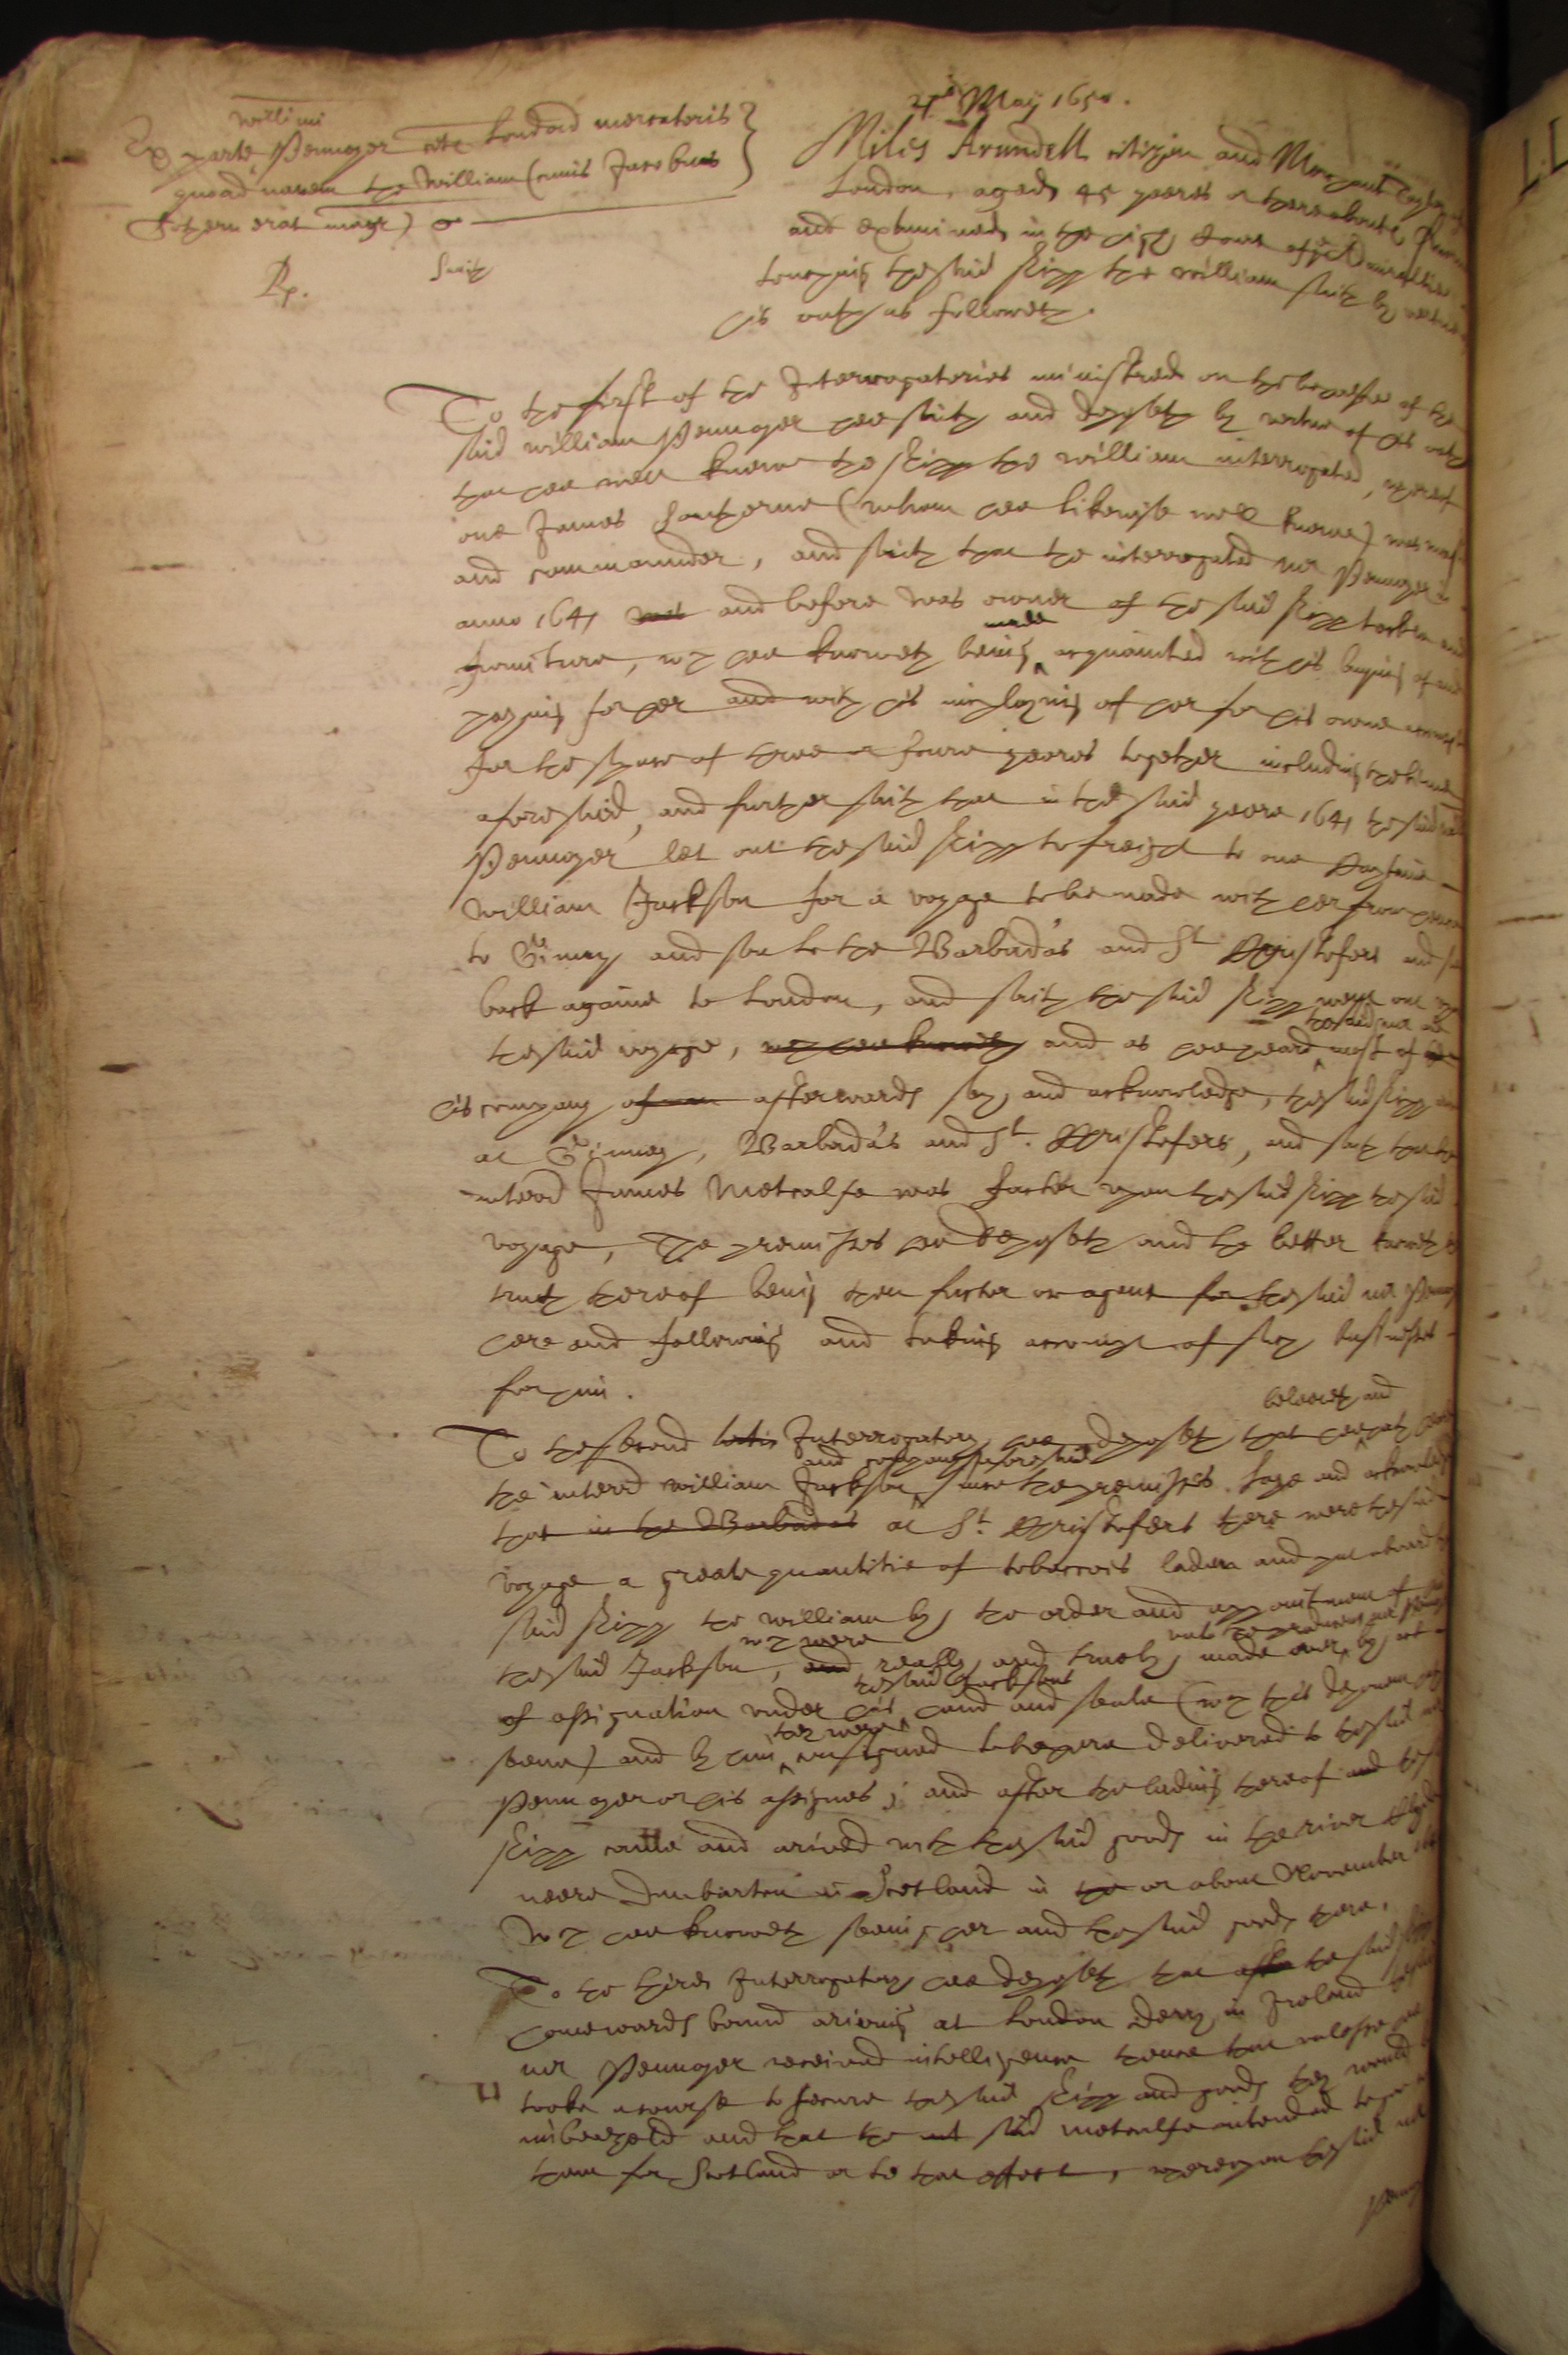 4th May 1650.
willimi
Ex parte Pennoyer civis London mercatoris
quoad navem the William (cuius Jacobus
Sothern erat magr)
Rp. Smith
Miles Arundell citizen and Merchant Taylor of
London, aged 45 yeeres or thereabouts
and examined in the high Court of the Admiraltie
touching the said shipp the William saith by vertue
his oath as followeth.
To the first of the Interrogatories ministred on the behalfe of the
said William Pennoyer hee saith and deposeth by vertue of his oath
that hee well knewe the shipp the William interrogated, whereof
one James Sootherne (whom hee likewise well knewe) was
and commaunder, and saith that the interrogated mr Pennoyer in
anno 1641 was and before was owner of the said shipp tackle and
furniture, wch hee knoweth being acquainted with his buying of and
made
paying for her and with his imploying of her for his owne accompt
for the space of three or foure yeeres together including the time
aforesaid, and further saith that in the said yeere 1641 the said mr
Pennoyer let out the said shipp to freight to one Captaine
William Jackson for a voyage to be made with her from hence
to Ginney and soe to the Barbada's and St Christofers and soe
back againe to London, and saith the said shipp went out upon
the said voyage, wch hee knoweth and as hee heard most of
the said mr and
his company of afterwards say and acknowledge, the said shipp
at Ginney, Barbada's and St. Christofers, and saith that the
interrd James Metcalfe was factor upon the said shipp the said
voyage, The premisses hee deposeth and the better knoweth the
truth thereof being then factor or agent for the said mr Pennoyer
here and following and taking accompt of such businesses
for him.
To the second Interrogatory hee deposeth that hee hath heard
beleeveth and
the interrd William Jackson since the premisses saye and acknowledge
and company aforesaid
that in the Barbadas at St Christofers there were the said
voyage a greate quantitie of tobaccoes laden and put aboard the
said shipp the William by the order and appointment of
the said Jackson, and really and truely made over by act
wch were unto the producent mr Pennoyer
of assignation under his hand and seale (wch this deponent hath
the said Jacksons
seene) and by him consigned to be here delivered to the said mr
they were
Pennoyer or his assignes; and after the lading thereof and the
shipp came and arived with the said goods in the river
neere Dunbarton in Scotland in the or about November
wch hee knoweth seeing her and the said goods there.
To the third Interrogatory hee deposeth that after the said shipp
homewards bound ariving at London Derry in Ireland the said
mr Pennoyer received intelligence thence that unlesse hee
tooke a course to secure the said shipp and goods they would be
imbeazeled and that the said Metcalfe intended to
them for Scotland or to that effect, whereupon the said mr
Pennoyer